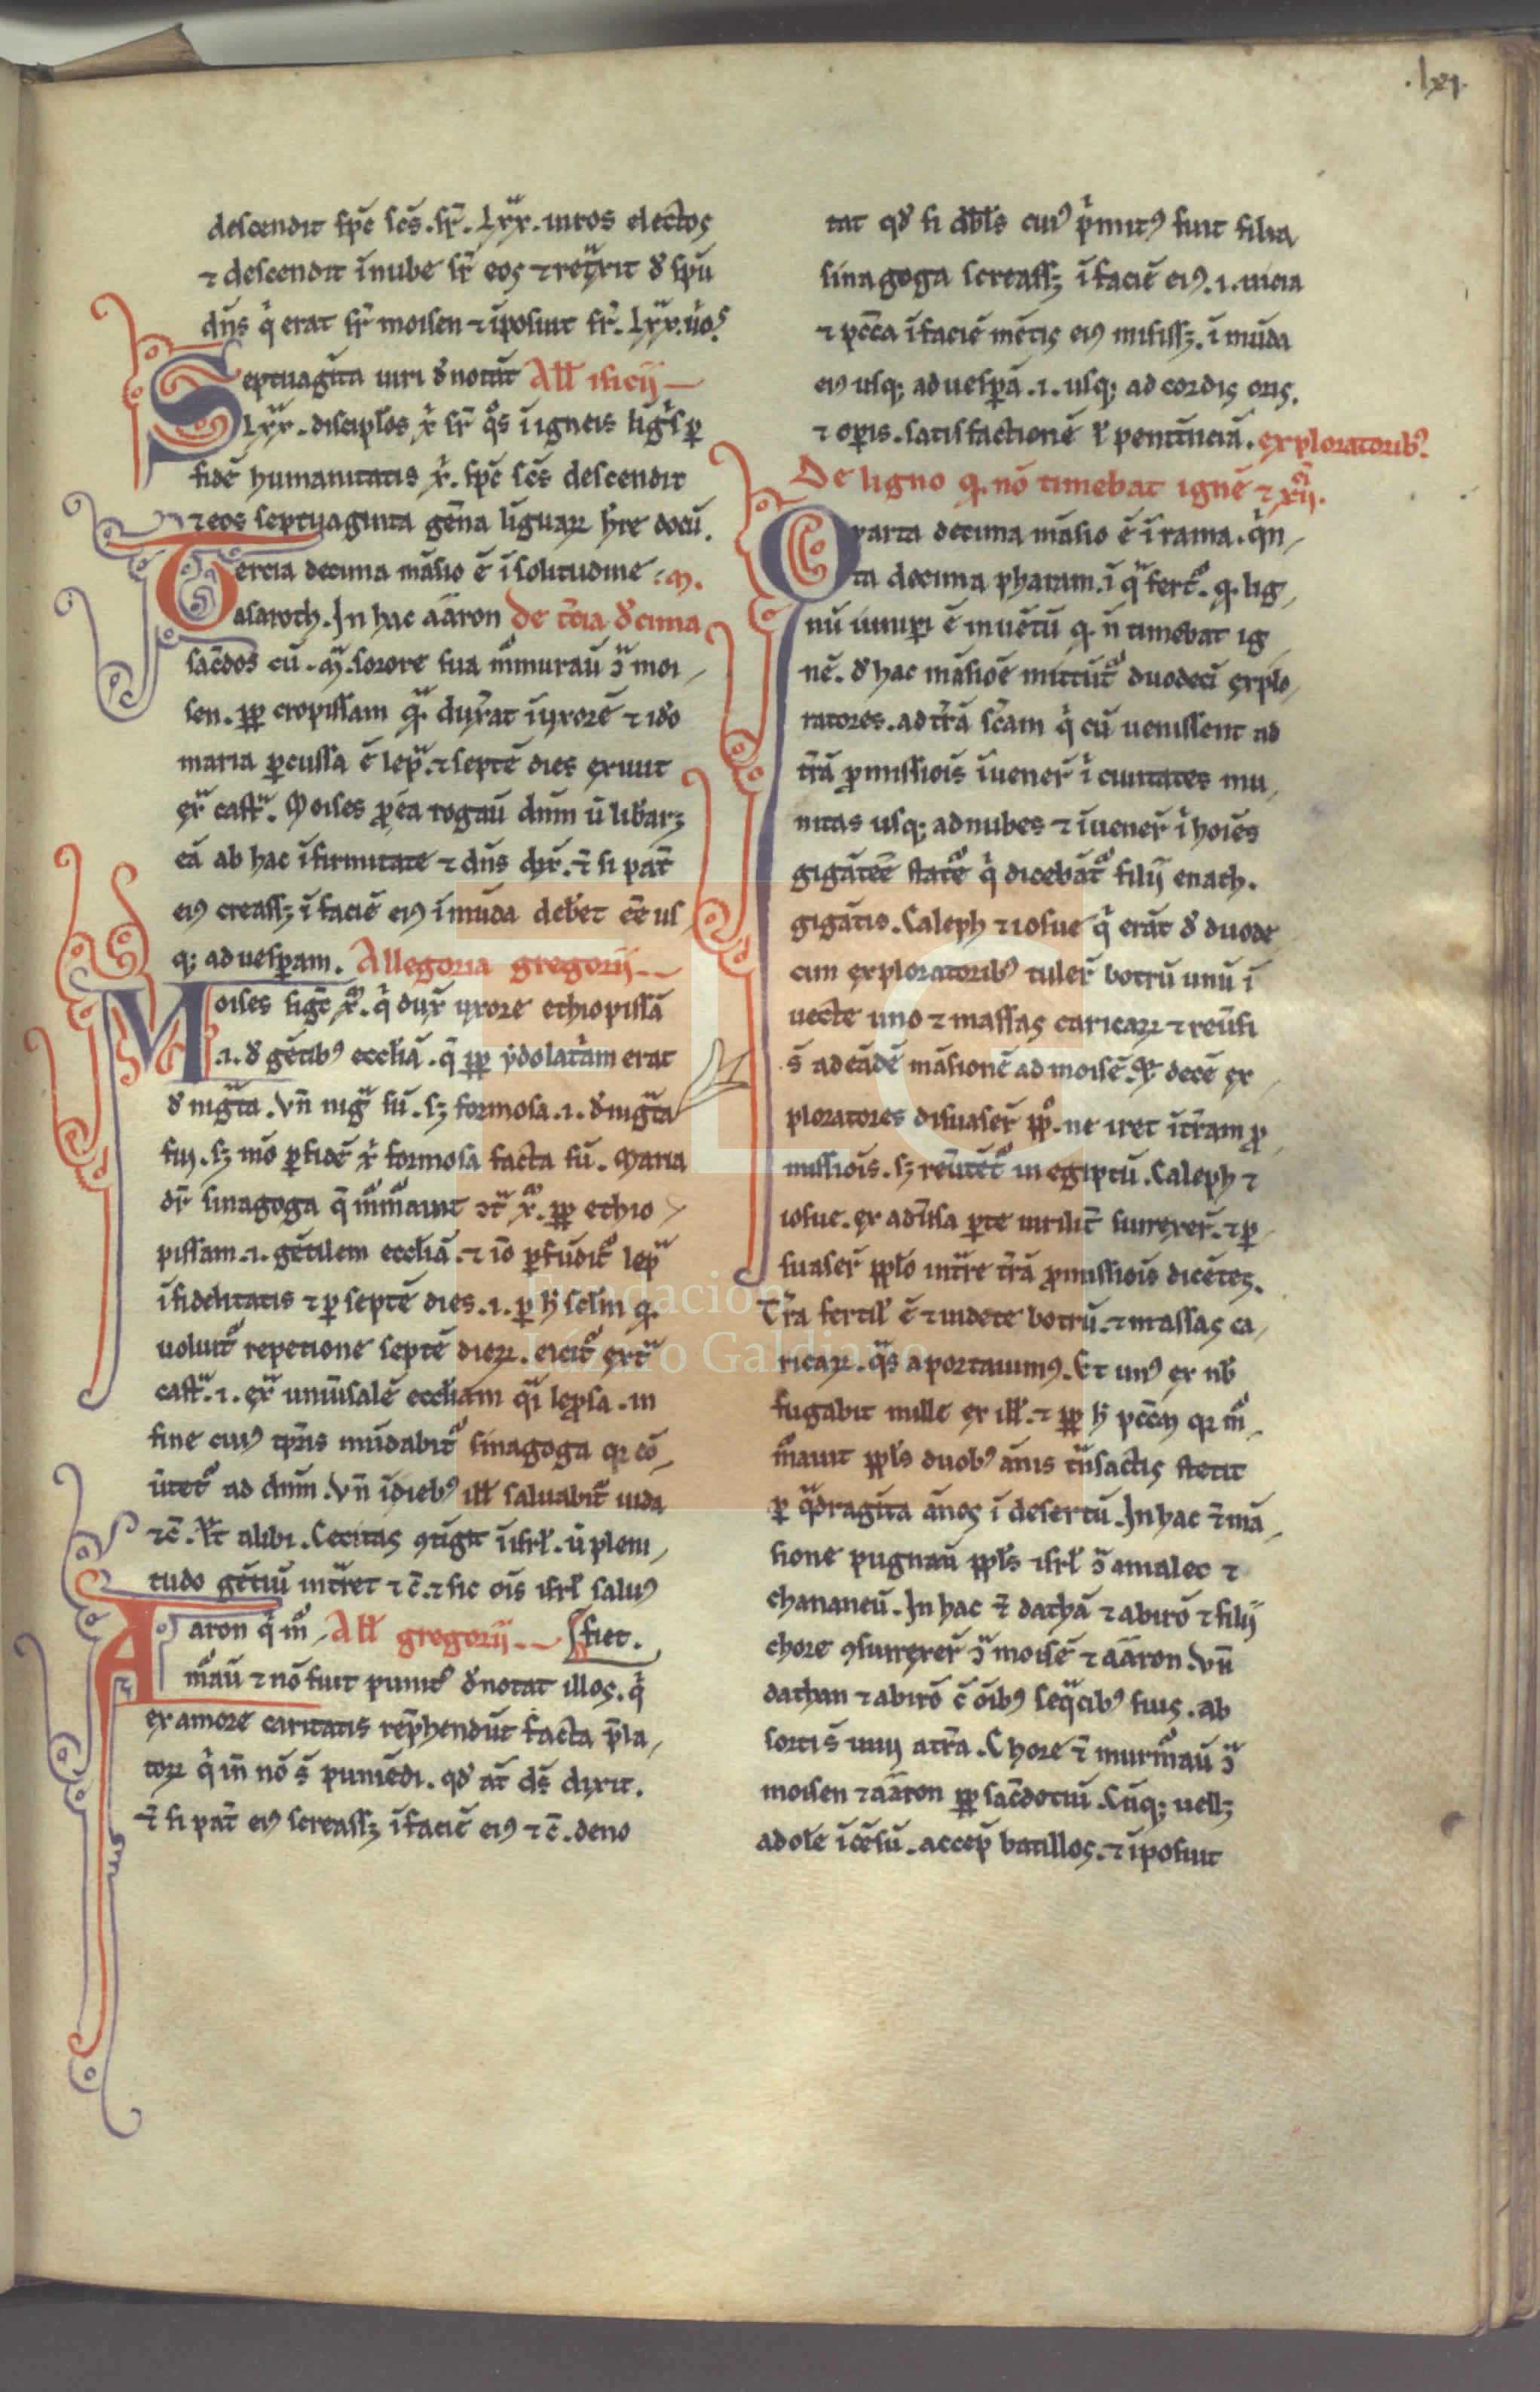 .lxi.
descendit sp̄c sc̄s. sr̄. lxx. uiros electos
⁊ descendit ī nube sr̄ eos ⁊ retͣxit đ sp̄u
dn̄s qͥ erat sr̄ moisen ⁊ īposuit sr̄. lxx. uͥos.
Septuagīta uiri đnotāt All' isicii
lxx. discip̄los xͥ sr̄ qͦs ī igneis liḡͥs ꝑ
fidē humanitatis xͥ. sp̄c sc̄s descendit
⁊ eos septuaginta gēna līguaꝝ hr̄e docū.
Tercia decima māsio ē ī solitudine .m.
asaroth. In hac aāron De t̄cia đcima
sac̄dos cū. mͣ. sorore sua mͦmurau̅ ↄͣ moi
sen. ꝓꝑ etiopissam qͣ. dux̄at ī uxorē ⁊ iđo
maria ꝑcussa ē lepͣ. ⁊ septē dies exiuit
exͣ castͣ. Moises ꝓ ea rogau̅ dn̄m u̅ lib̄arꝫ
eā ab hac īfirmitate ⁊ dn̄s dix̄. ⁊̄ si pat̄
eiꝰ creassꝫ ī faciē eiꝰ ī mūda deb̄et ēe us
qꝫ ad uesꝑam. Allegoria gregorii
Moises sigᵗ xͫ. qͥ dux̄ uxore ethiopissā
.i. đ gētibꝰ eccl̄iā. q̄ ꝓꝑ ydolatͥam erat
đ nigͣta. Vn̄ nigͣ sū. sꝫ formosa .i. đnigͣta
fui. sꝫ mͦ ꝑ fidē xͥ formosa facta sū. Maria
dr̄ sinagoga q̄ mͦmͣauit ↄtͣ xͫ. ꝓꝑ ethio
pissam .i. gētilem eccl̄iā. ⁊ iō ꝑfūditͦ lepͣ
īfidelitatis ⁊ ꝑ septē dies .i. ꝑ h̄ sc̄lm q.
uoluitͦ repetione septē dieꝝ. eicitͦ extͣ
castͣ. i. exͣ uniu̅salē eccl̄iam qͣi lep̄sa. in
fine cuiꝰ tp̄ris mūdabitͦ sinagoga qꝛ cō
u̅tetͦ ad dn̄m. Vn̄ ī diebꝰ ill' saluabit̄ iuda
⁊c̄. Et alibi. Cecitas ꝯtigit ī isrl̄. u̅ pleni
tudo gētiū intͣret ⁊c̄. ⁊ sic oīs isrl̄ saluꝰ
Aaron qͥ mͦ All' gregorii fiet.
mͣau̅ ⁊ nō fuit punitꝰ đnotat illos. qͥ
ex amore caritatis rep̄hendūt facta p̄la
toꝝ qͥ īn̄ nō s̄ puniēdi. qđ at̄ ds̄ dixit.
⁊̄ si pat̄ eiꝰ screassꝫ ī faciē eiꝰ ⁊c̄. deno
tat qđ si dꝫbl̄s cuiꝰ pͥmitꝰ fuit filia
sinagoga screassꝫ ī faciē eiꝰ. i. uicia
⁊ pcc̄a ī faciē mētis eiꝰ misissꝫ. ī mūda
eiꝰ usqꝫ ad uesꝑā .i. usqꝫ ad cordis oris.
⁊ oꝑis. satisfactionē ł penitēciā. exploratoribꝰ
De ligno q. nō timebat ignē ⁊ xͫii.
Quarta decima māsio ē ī rama. qͥn
ta decima pharam. ī qͣ fertͦ. q. lig
nū iuniꝑi ē inuētū q. n̄ timebat ig
nē. đ hac māsioē mittūtͦ duodecī explo
ratores. ad tr̄ā sc̄am qͥ cū uenissent ad
tr̄ā ꝓmissiois īuener̄ ī ciuitates mu
nitas usqꝫ ad nubes ⁊ īuener̄ ī hoiēs
gigātēe statͦe qͥ dicebātͦ filii enach.
gigātis. Caleph ⁊ iosue qͥ erāt đ duode
cim exploratoribꝰ tuler̄ botrū unū ī
uecte uno ⁊ massas caricaꝝ ⁊ reu̅si
s̄ ad eādē māsionē ad moisē. Et decē ex
ploratores disuaser̄ ꝓꝑͦ. ne iret ī tr̄am ꝓ
missiois. sꝫ reu̅tētͦ in egiptū. Caleph ⁊
iosue. ex adu̅sa ꝑte uirilit̄ surrexer̄. ⁊ ꝑ
suaser̄ pp̄lo intͣre tr̄ā ꝓmissiois dicētes.
Tr̄a fertil' ē ⁊ uidete botrū. ⁊ massas ca
ricaꝝ. qͣs aportauimꝰ. Et unꝰ ex nob̄
fugabit mille ex ill'. ⁊ ꝓꝑ h̄ pcc̄m qꝛ mͦ
mͣauit pp̄ls duobꝰ ānis tͣnsactis stetit
ꝑ qͣdragīta ānos ī desertū. In hac ⁊̄ mā
sione pugnau̅ pp̄ls isrl̄ ↄͣ amalec ⁊
chananeū. In hac ⁊̄ dathā ⁊ abirō ⁊ filii
chore ꝯsurrexer̄ ↄͣ moisē ⁊ aāron. Vn̄
dathan ⁊ abirō c̄ oībꝰ seqͣcibꝰ suis. ab
sorti s̄ uiui a tr̄a. Chore ⁊̄ murmͣau̅ ↄͣ
moisen ⁊ aāron ꝓꝑ sac̄dotiū. Cūqꝫ uellꝫ
adole īcēsū. accep̄ batillos. ⁊ īposuit